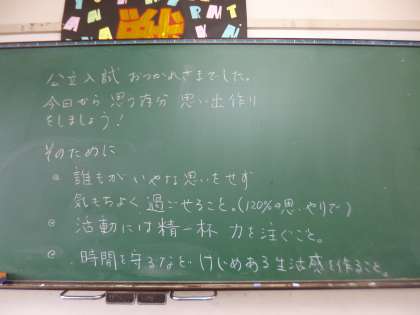 公立入試 おつかれさまでした。
今日から 思う存分 思い出作り
をしましょう!
そのために
◎ 誰もがいやな思いをせず
気もちよく 過ごせること。(120%の思いやりで)
◎ 活動には精一杯 力を注ぐこと。
◎ 時間を守るなど けじめある生活感を作ること。